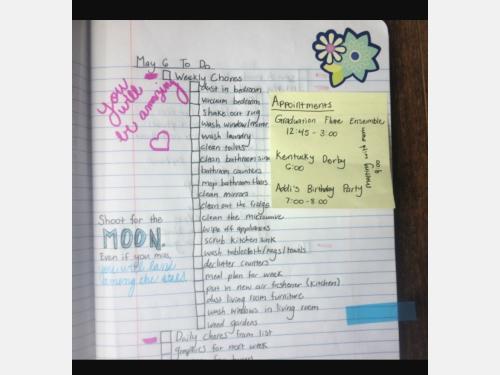 May 6 To Do
Weekly Chores
dust in bedroom
vacuum bedroom
shake out rug
wash window/mirror
wash laundry
clean toilets
clean bathroom sink
bathroom counters
mop bathroom floors
clean mirrors
clean out the fridge
clean the microwave
wipe off appliances
scrub kitchen sink
wash tablecloth/rugs/towels
declutter counters
meal plan for week
put in new air freshener (kitchen)
dust living room furniture
wash windows in living room
weed gardens
Daily chores from list
graphics for next week
you
will
be amazing
Shoot for the
MOON.
Even if you miss,
you will land
among the stars
Appointments
Graduation Flute Ensemble
12:45 - 3:00
Kentucky Derby
6:00
Addi's Birthday Party
7:00-8:00